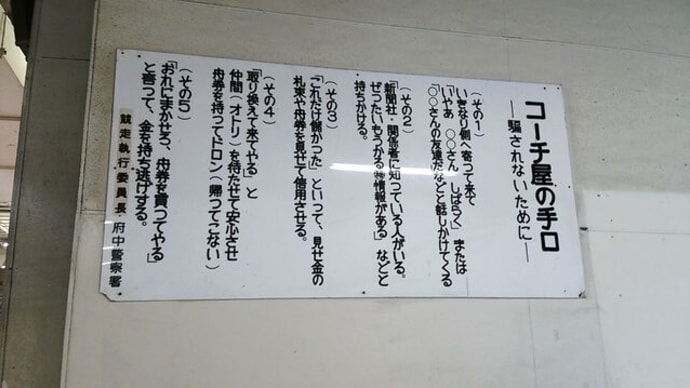 コーチ屋の手口
―騙されないために―
(その1)
いきなり側へ寄って来て
「いやあ 〇〇さん しばらく」または
「〇〇さんの友達だなどと話しかけてくる
(その2)
「新聞社・関係者に知っている人がいる。
ぜったいもうかる㊙情報がある」などと
持ちかける。
(その3)
「これだけ儲かった」といって、見せ金の
札束や舟券を見せて信用させる。
(その4)
「取り換えて来てやる」と
仲間(オトリ)を待たせて安心させ
舟券を持ってドロン(帰ってこない)
(その5)
「おれにまかせろ、舟券を買ってやる」
と言って、金を持ち逃げする。
競走執行委員長
府中警察署